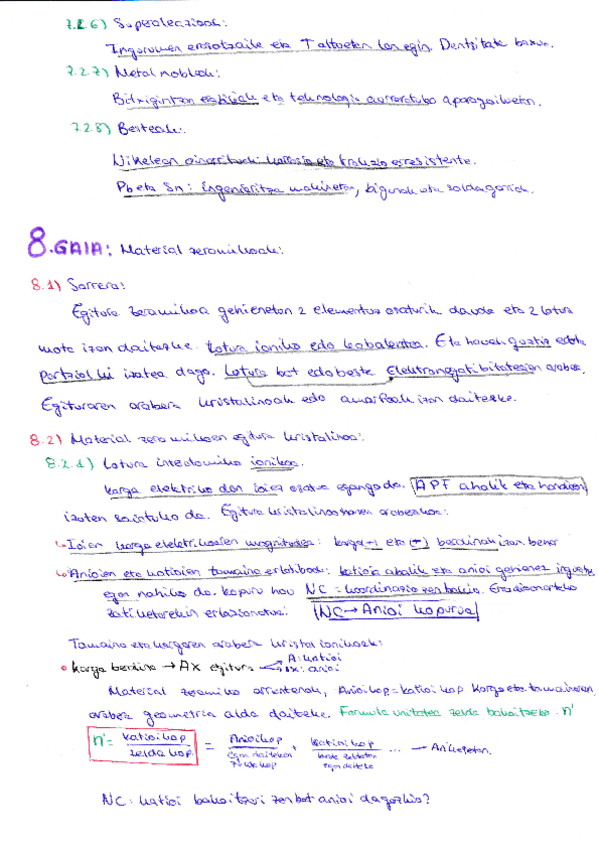 7.2.6) Superaleazioak:
Ingurumen erasotzaile eta T altuetan lan egin. Dentsitate baxua.
7.2.7) Metal nobleak:
Bitxigintzan erabiliak eta teknologia aurreratuko aparagailuetan.
7.2.8) Besteak:
Nikelean oinarrituak: korrosio eta erresistente.
Pb eta Sn: Ingeniaritza makinetan, bigunak eta soldagarriak.
8.GAIA: Material zeramikoak:
8.1) Sarrera:
Egitura zeramikoa gehienetan 2 elementuz osaturik daude eta 2 lotura
mota izan daitezke. Lotura ioniko edo kobalentea. Eta hauek guztiz edota
partzialki izatea dago. Lotura bat edo beste elektronegatibitatearen arabera.
Egituraren arabera kristalinoak edo amorfoak izan daitezke.
8.2) Material zeramikoen egitura kristalinoa:
8.2.1) Lotura interatomiko ionikoa.
Karga elektriko don ioiez osatua egongo da. APF ahalik eta handien
izaten saiatuko da. Egitura kristalinoaren araberakoa:
Ioien karga elektrikoaren magnitudea: karga - eta (+) berdinak izan behar
Anioien eta katioien tamaina erlatiboak: katioia ahalik eta anioi gehienez inguratuta
egon nahiko da. kopuru hau NC = koordinazio zenbakia. Erradioarteko
zatiketarekin erlazionatua. NC → Anioi kopurua
Tamaina eta kargaren arabera kristal ionikoak:
karga berdina → AX egitura A: katioi
X: anioi
Material zeramiko arruntenak, Anioi kop = katioi kop Karga eta tamainaren
arabera geometria alda daiteke. Formula unitatea zelda bakoitzeko n'
n' = katioi kop / zelda kop = Anioi kop / egon daitekeen zelda kop + Katioi kop / ... — An kopetan.
NC: katioi bakoitzari zenbat anioi dagozkio?